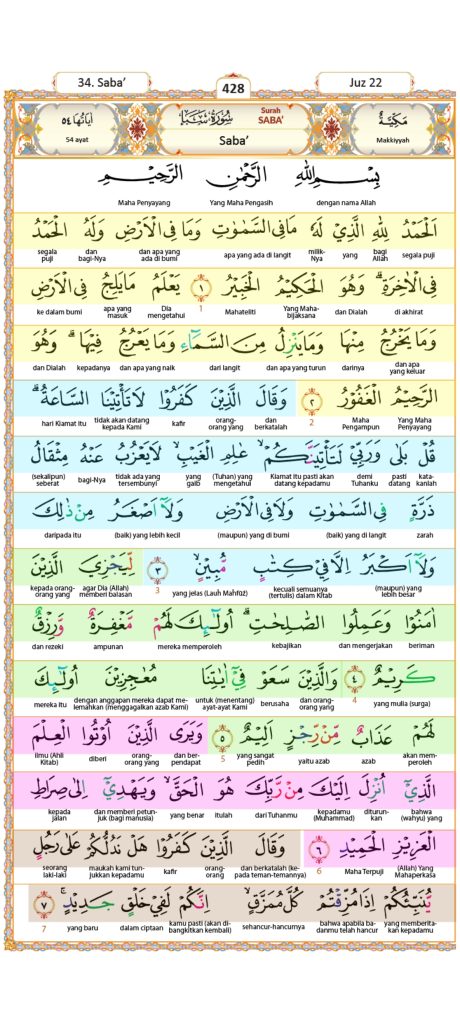 34. Saba’ 428 Juz 22
اٰيَاتُهَا ٥٤ سُوْرَةُ سَبَاٍ Surah SABA’ مَكِّيَّةٌ
54 ayat Saba’ Makkiyyah
بِسْمِ اللّٰهِ الرَّحْمٰنِ الرَّحِيْمِ
dengan nama Allah Yang Maha Pengasih Maha Penyayang
اَلْحَمْدُ لِلّٰهِ الَّذِيْ لَهٗ مَا فِى السَّمٰوٰتِ وَمَا فِى الْاَرْضِ وَلَهُ الْحَمْدُ
segala puji bagi Allah yang milik-Nya apa yang ada di langit dan apa yang ada di bumi dan bagi-Nya segala puji
فِى الْاٰخِرَةِۗ وَهُوَ الْحَكِيْمُ الْخَبِيْرُ ١ يَعْلَمُ مَا يَلِجُ فِى الْاَرْضِ
di akhirat dan Dialah Yang Maha-bijaksana Mahateliti 1 Dia mengetahui apa yang masuk ke dalam bumi
وَمَا يَخْرُجُ مِنْهَا وَمَا يَنْزِلُ مِنَ السَّمَاۤءِ وَمَا يَعْرُجُ فِيْهَاۗ وَهُوَ
dan apa yang keluar darinya dan apa yang turun dari langit dan apa yang naik kepadanya dan Dialah
الرَّحِيْمُ الْغَفُوْرُ ٢ وَقَالَ الَّذِيْنَ كَفَرُوْا لَا تَأْتِيْنَا السَّاعَةُۗ
Yang Maha Penyayang Maha Pengampun 2 dan berkatalah orang-orang yang kafir tidak akan datang kepada Kami hari Kiamat itu
قُلْ بَلٰى وَرَبِّيْ لَتَأْتِيَنَّكُمْۙ عٰلِمِ الْغَيْبِۙ لَا يَعْزُبُ عَنْهُ مِثْقَالُ
kata-kanlah pasti datang demi Tuhanku Kiamat itu pasti akan datang kepadamu (Tuhan) Yang mengetahui yang gaib tidak ada yang tersembunyi bagi-Nya (sekalipun) seberat
ذَرَّةٍ فِى السَّمٰوٰتِ وَلَا فِى الْاَرْضِ وَلَآ اَصْغَرُ مِنْ ذٰلِكَ
zarah (baik) yang di langit (maupun) yang di bumi (baik) yang lebih kecil daripada itu
وَلَآ اَكْبَرُ اِلَّا فِيْ كِتٰبٍ مُّبِيْنٍۙ ٣ لِّيَجْزِيَ الَّذِيْنَ
(maupun) yang lebih besar kecuali semuanya (tertulis) dalam Kitab yang jelas (Lauh Mahfūẓ) 3 agar Dia (Allah) memberi balasan kepada orang-orang yang
اٰمَنُوْا وَعَمِلُوا الصّٰلِحٰتِۗ اُولٰۤىِٕكَ لَهُمْ مَّغْفِرَةٌ وَّرِزْقٌ
beriman dan mengerjakan kebajikan mereka memperoleh ampunan dan rezeki
كَرِيْمٌ ٤ وَالَّذِيْنَ سَعَوْ فِيْٓ اٰيٰتِنَا مُعٰجِزِيْنَ اُولٰۤىِٕكَ
yang mulia (surga) 4 dan orang-orang yang berusaha untuk (menentang) ayat-ayat Kami dengan anggapan mereka dapat me-lemahkan (menggagalkan azab Kami) mereka itu
لَهُمْ عَذَابٌ مِّنْ رِّجْزٍ اَلِيْمٌ ٥ وَيَرَى الَّذِيْنَ اُوْتُوا الْعِلْمَ
akan mem-peroleh azab yaitu azab yang sangat pedih 5 dan ber-pendapat orang-orang yang diberi ilmu (Ahli Kitab)
الَّذِيْٓ اُنْزِلَ اِلَيْكَ مِنْ رَّبِّكَ هُوَ الْحَقَّۙ وَيَهْدِيْٓ اِلٰى صِرَاطِ
bahwa (wahyu) yang diturun-kan kepadamu (Muhammad) dari Tuhanmu itulah yang benar dan memberi petun-juk (bagi manusia) kepada jalan
الْعَزِيْزِ الْحَمِيْدِ ٦ وَقَالَ الَّذِيْنَ كَفَرُوْا هَلْ نَدُلُّكُمْ عَلٰى رَجُلٍ
(Allah) Yang Mahaperkasa Maha Terpuji 6 dan berkatalah (ke-pada teman-temannya) orang-orang yang kafir maukah kami tun-jukkan kepadamu seorang laki-laki
يُّنَبِّئُكُمْ اِذَا مُزِّقْتُمْ كُلَّ مُمَزَّقٍۙ اِنَّكُمْ لَفِيْ خَلْقٍ جَدِيْدٍۚ ٧
yang memberita-kan kepadamu bahwa apabila ba-danmu telah hancur sehancur-hancurnya kamu pasti (akan di-bangkitkan kembali) dalam ciptaan yang baru 7